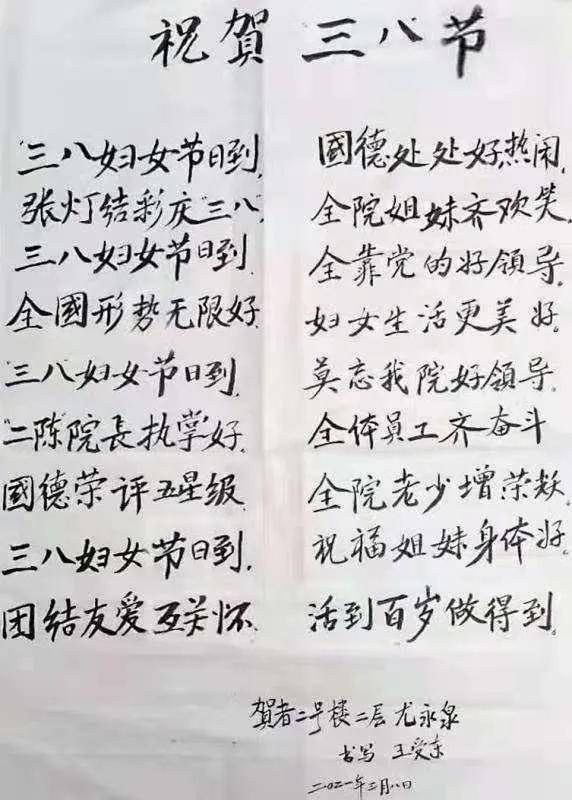 祝賀三八节
三八妇女节日到, 國德处处好热闹,
张灯结彩庆三八, 全院姐妹齐欢笑,
三八妇女节日到, 全靠党的好领导.
全國形势无限好, 妇女生活更美好.
三八妇女节日到, 莫忘我院好领导.
二陈院長执掌好, 全体员工齐奋斗
國德荣评五星级, 全院老少增荣耀,
三八妇女节日到, 祝福姐妹身体好.
团结友爱互关怀, 活到百岁做得到.
賀者二号楼二层 尤永泉
书写 王受东
二〇二一年三月八日